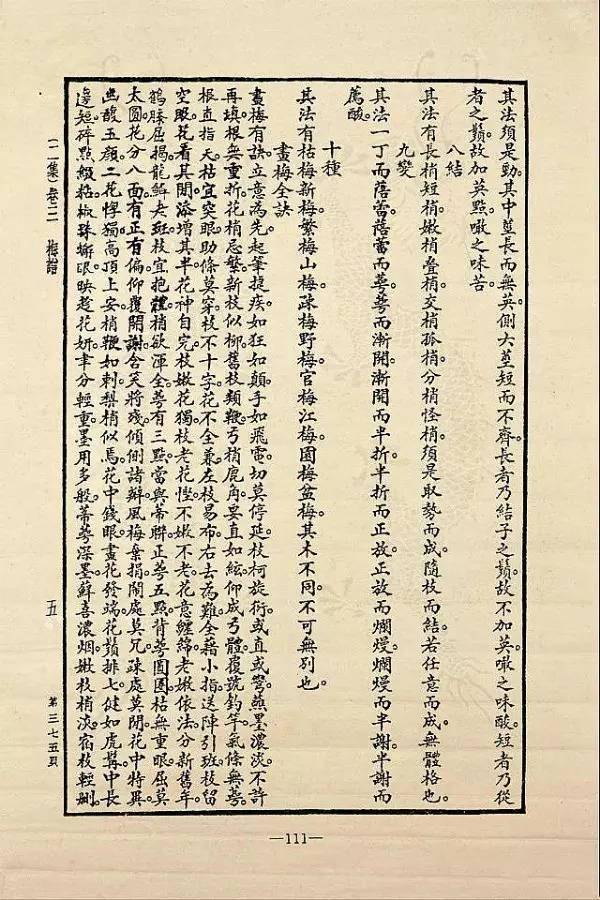 其法須是勁。其中莖長而無英。側大莖短而不齊。長者乃結子之鬚。故不加英。噉之味酸。短者乃從
者之鬚。故加英點。噉之味苦。
八結
其法有長梢短梢嫩梢疊梢交梢孤梢分梢怪梢。須是取勢而成。隨枝而結。若任意而成。無體格也。
九變
其法一丁而蓓蕾。蓓蕾而萼。萼而漸開。漸開而半折。半折而正放。正放而爛熳。爛熳而半謝。半謝而
薦酸。
十種
其法有枯梅新梅繁梅山梅疎梅野梅官梅江梅園梅盆梅。其木不同。不可無別也。
畫梅全訣
畫梅有訣。立意為先。起筆捷疾。如狂如顛。手如飛電。切莫停延。枝柯旋衍。或直或彎。蘸墨濃淡。不許
再填。根無重折。花梢忌繁。新枝似柳。舊枝類鞭。弓梢鹿角。要直如絃。仰成弓體。覆號釣竿。氣條無萼。
根直指天。枯宜突眼。助條莫穿。枝不十字。花不全兼。左枝易布。右去為難。全藉小指。送陣引班。枝留
空眼。花看其間。添增其半。花神自完。枝嫩花獨。枝老花慳。不嫩不老。花意纏綿。老嫩依法。分新舊年。
鶴膝屈揭。龍鱗老斑。枝宜抱體。梢欲渾全。萼有三點。當與蒂聯。正萼五點。背萼圓圈。枯無重眼。屈莫
太圓。花分八面。有正有偏。仰覆開謝。含笑將殘。傾側諸瓣。風梅棄捐。鬧處莫冗。疎處莫閒。花中特異。
幽馥五顏。二花惺獨。高頂上安。梢鞭如刺。梨梢似焉。花中錢眼。畫花發端。花鬚排七。健如虎鬚。中長
邊短。碎點綴粘。椒珠蟹眼。映趁花妍。聿分輕重。墨用多般。蒂萼深墨。蘚喜濃烟。嫩枝梢淡。宿枝輕刪。
(二集)卷二 梅譜 一五 第三七五頁
—111—